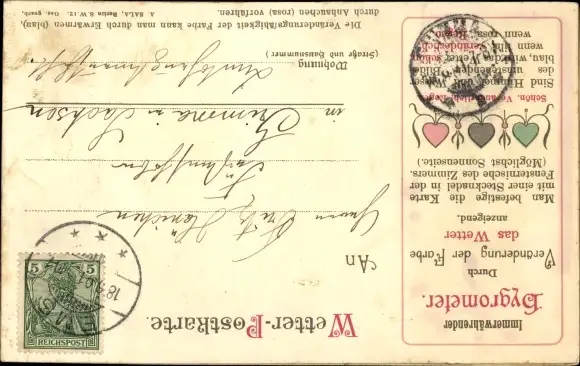 Wetter-Postkarte.
Immerwährender
Hygrometer.
Durch
Veränderung der Farbe
das Wetter
anzeigend.
Man befestige die Karte
mit einer Stecknadel in der
Fensternische des Zimmers.
(Möglichst Sonnenseite.)
Schön. Veränderlich. Regen.
Sind Himmel und Wasser
des umstehenden Bildes
blau, wird das Wetter schön
wenn lila, veränderlich
wenn rosa, Regen.
An
Herrn Fritz
in Grimma in Sachsen
Wohnung
(Straße und Hausnummer)
Die Veränderungsfähigkeit der Farbe kann man durch Erwärmen (blau),
durch Anhauchen (rosa) vorführen.
A. SALA, Berlin S.W. 12. Ges. gesch.
5 5
REICHSPOST